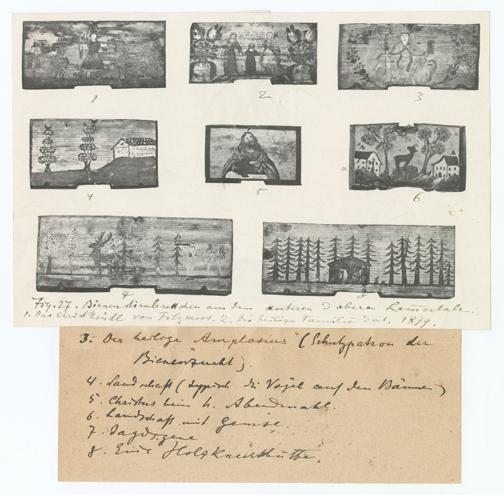 1
2.
3
4
5
6
7
8
Fig. 27. Bienenstirnbrettchen aus dem unteren & oberen Lammertale.
1. Das Christkindl von Filzmoos. 2. Die heilige Familie dat. 1879.
3. Der heilige Amprosius (Schutzpatron der
Bienenzucht).
4. Landschaft ( die Vögel auf den Bäumen)
5. Christus beim h. Abendmahl.
6. Landschaft mit Gemse.
7. Jagdszene
8. Eine Holzknechthütte.